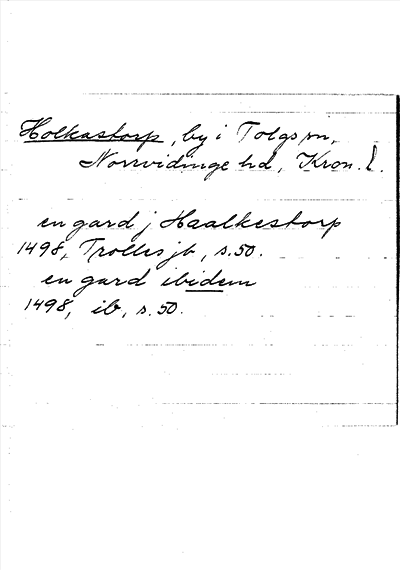 Holkastorp, by i Tolgs sn,
Norrvidinge hd, Kron. l.
en gard j Haalkestorp
1498, Trolles jb, s.50.
en gard ibidem
1498, ib, s.50.